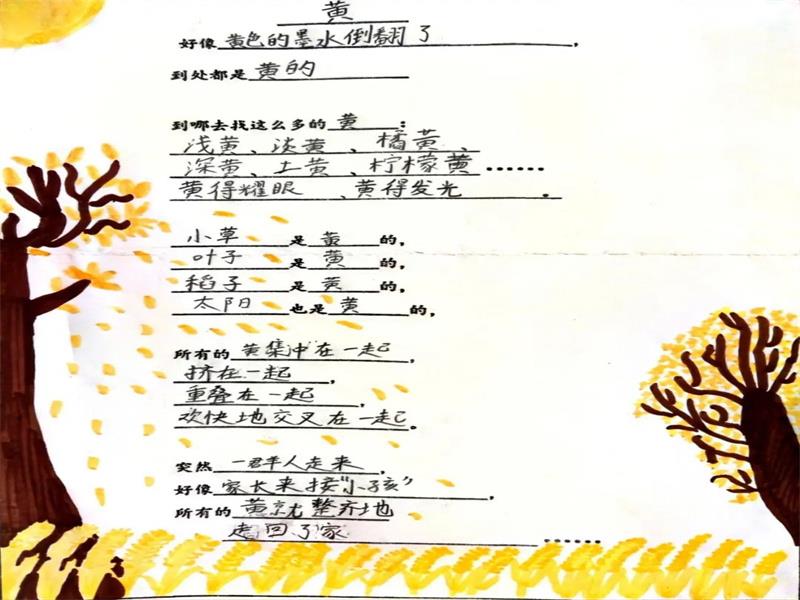 黄
好像黄色的墨水倒翻了，
到处都是黄的
到哪去找这么多的黄：
浅黄、淡黄、橘黄、
深黄、土黄、柠檬黄……
黄得耀眼、黄得发光。
小草是黄的，
叶子是黄的，
稻子是黄的，
太阳也是黄的，
所有的黄集冲在一起，
挤在一起，
重叠在一起，
欢快地交叉在一起。
突然一群人走来，
好像家长来接“小孩”，
所有的黄就整齐地
走回了家……